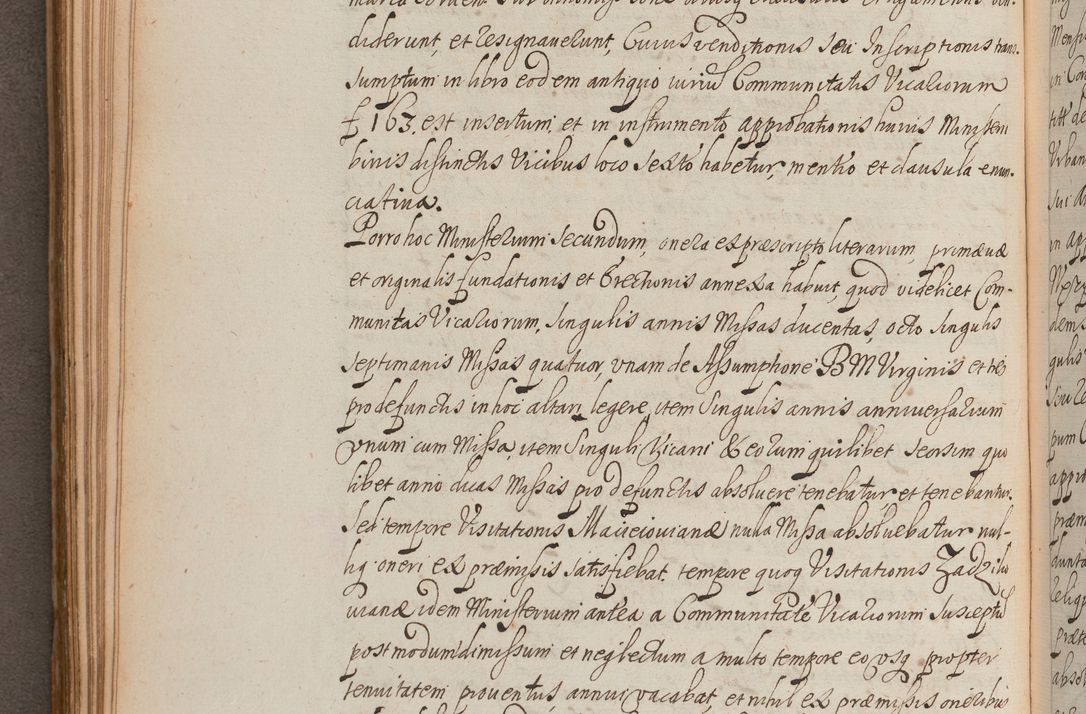 diderunt, et resignaverunt, Cuius venditionis seu Inscriptionis trans-
sumptum in libro eodem antiquo iurium Communitatis Vicariorum
f 163, est insertum et in instrumento approbationis huius Ministerii
binis distinctis Vicibus loco sexto habetur, mentio et clausula enun-
ciativa.
Porro hoc Ministerium secundum, onera ex præscripto literarum, primævæ
et originalis fundationis et Erectionis annexa habuit, quod videlicet Com-
munitas Vicariorum, singulis annis Missas ducentas, octo singulis
septimanis Missas quatuor, vnam de Assumptione B M Virginis et tres
pro defunctis in hoc altari legere, item singulis annis anniversarium
vnum cum Missa, item singuli Vicarii & eorum quilibet seorsim quo
libet anno duas Missas pro defunctis absoluere tenebatur, et tenebantur.
Sed tempore Visitationis Macieiovianæ nulla Missa absoluebatur nul-
liq oneri ex præmissis satisfiebat. tempore quoq Visitationis Zadziko
vianæ idem Ministerium antea a Communitate Vicariorum susceptum
postmodum dimissum et neglectum a multo tempore eo vsq propter
tenuitatem proventus annui vacabat, et nihil ex præmissis oneribus